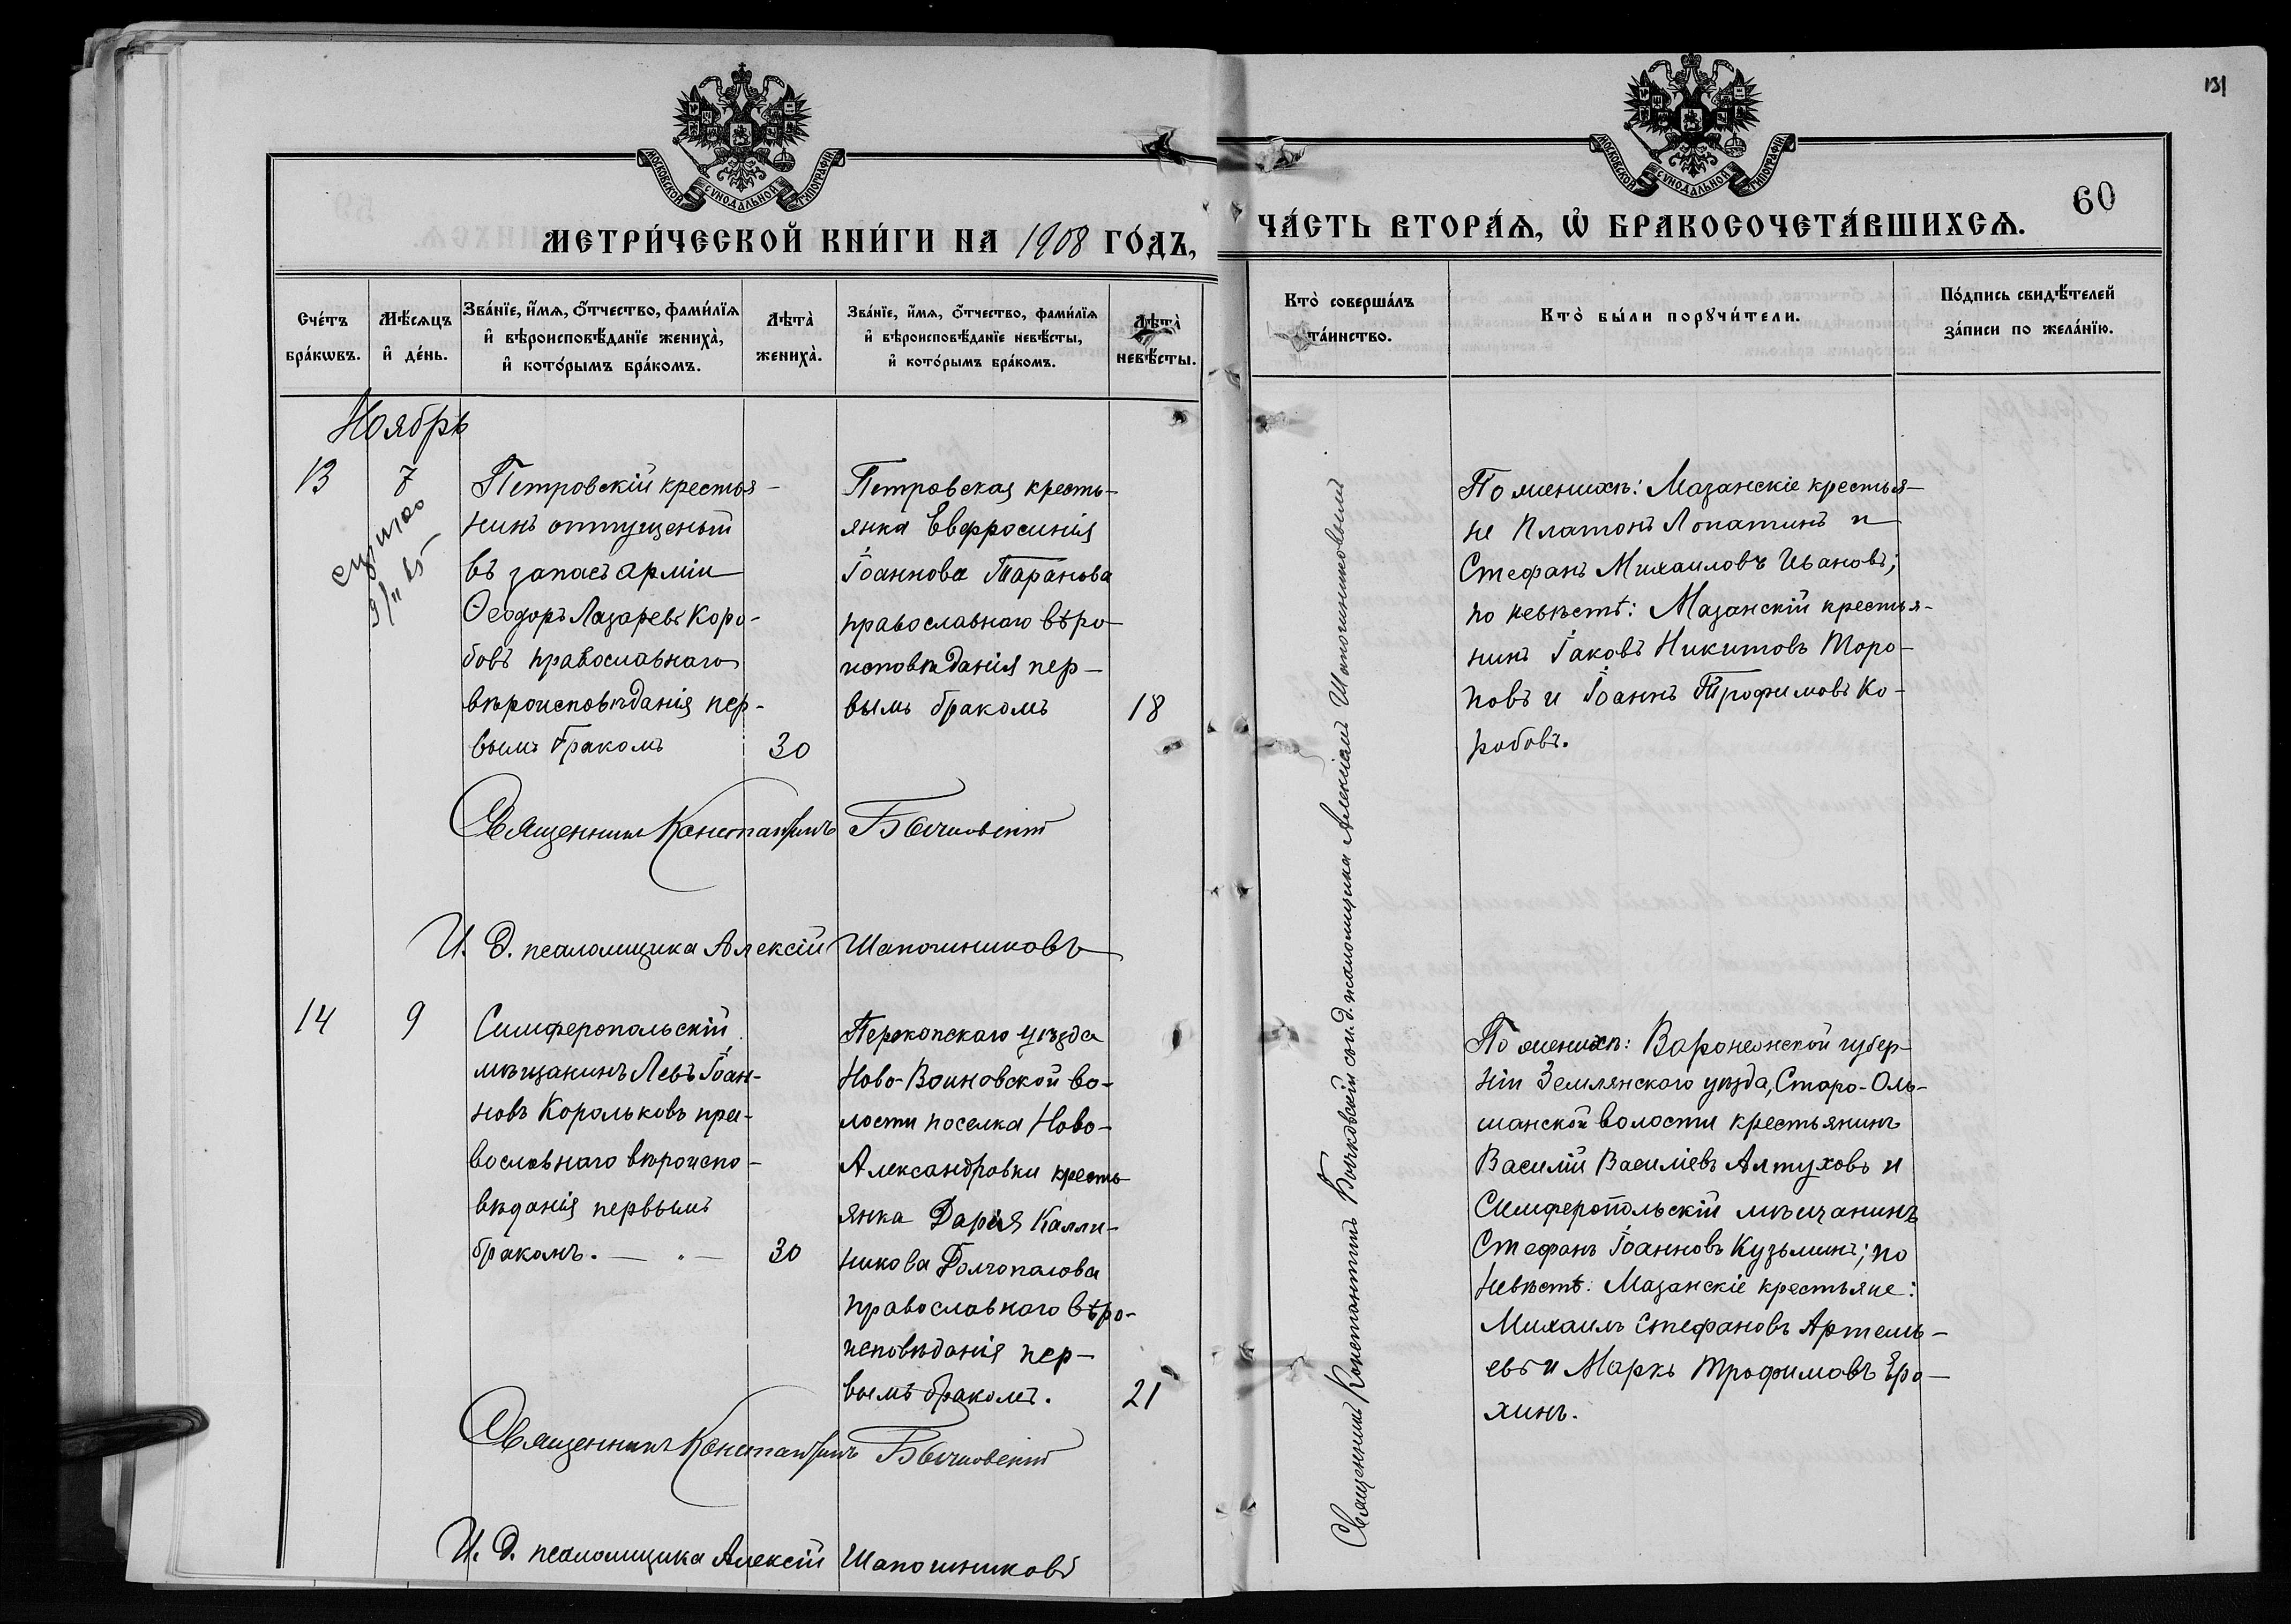 131
60
МОСКОВСКОЙ СѴНОДАЛЬНОЙ ТИПОГРАФІИ
МОСКОВСКОЙ СѴНОДАЛЬНОЙ ТИПОГРАФІИ
МЕТРИ́ЧЕСКОЙ КНИ́ГИ НА 1908 ГО́ДЪ,
ЧА́СТЬ ВТОРА́Ѧ, Ѽ БРАКОСОЧЕТА́ВШИХСѦ.
Сче́тъ бра́кѡвъ.
Мѣ́сѧцъ и҆ де́нь.
Зва́нїе, и҆́мѧ, ѻ҆́тчество, фами́лїѧ и҆ вѣроисповѣ́данїе жениха̀, и҆ кото́рымъ бра́комъ.
Лѣта̀ жениха̀.
Зва́нїе, и҆́мѧ, ѻ҆́тчество, фами́лїѧ и҆ вѣроисповѣ́данїе невѣ́сты, и҆ кото́рымъ бра́комъ.
Лѣта̀ невѣ́сты.
Кто̀ соверша́лъ та́инство.
Кто̀ бы́ли порꙋчи́тели.
По́дпись свидѣ́телей за́писи по жела́нїю.
Ноябрь
13
7
Петровскій крестья-
нинъ отпущеный
въ запасъ арміи
Ѳеодоръ Лазаревъ Коро-
бовъ православнаго
вѣроисповѣданія пер-
вымъ бракомъ
30
Петровская кресть-
янка Евфросинія
Іоаннова Таранова
православнаго вѣро-
исповѣданія пер-
вымъ бракомъ
18
По женихѣ: Мазанскіе крестья-
не Платонъ Лопатинъ и
Стефанъ Михаиловъ Ивановъ;
по невѣстѣ: Мазанскій крестья-
нинъ Іаковъ Никитовъ Торо-
повъ и Іоаннъ Трофимовъ Ко-
робовъ.
Священникъ Константинъ Бычковскій
И. д. псаломщика Алексій Шапошниковъ
14
9
Симферопольскій
мѣщанинъ Левъ Іоан-
новъ Корольковъ пра-
вославнаго вѣроиспо-
вѣданія первымъ
бракомъ.
30
Перекопскаго уѣзда
Ново-Воиновской во-
лости поселка Ново-
Александровки кресть-
янка Дарія Калли-
никова Долгополова
православнаго вѣро-
исповѣданія пер-
вымъ бракомъ.
21
По женихѣ: Воронежской губер-
ніи Землянскаго уѣзда, Старо-Оль-
шанской волости крестьянинъ
Василій Василіевъ Алтуховъ и
Симферопольскій мѣщанинъ
Стефанъ Іоанновъ Кузьминъ; по
невѣстѣ: Мазанскіе крестьяне:
Михаилъ Стефановъ Артемь-
евъ и Маркъ Трофимовъ Еро-
хинъ.
Священникъ Константинъ Бычковскій
И. д. псаломщика Алексій Шапошниковъ
Священникъ Константинъ Бычковскій съ и. д. псаломщика Алексіемъ Шапошниковымъ